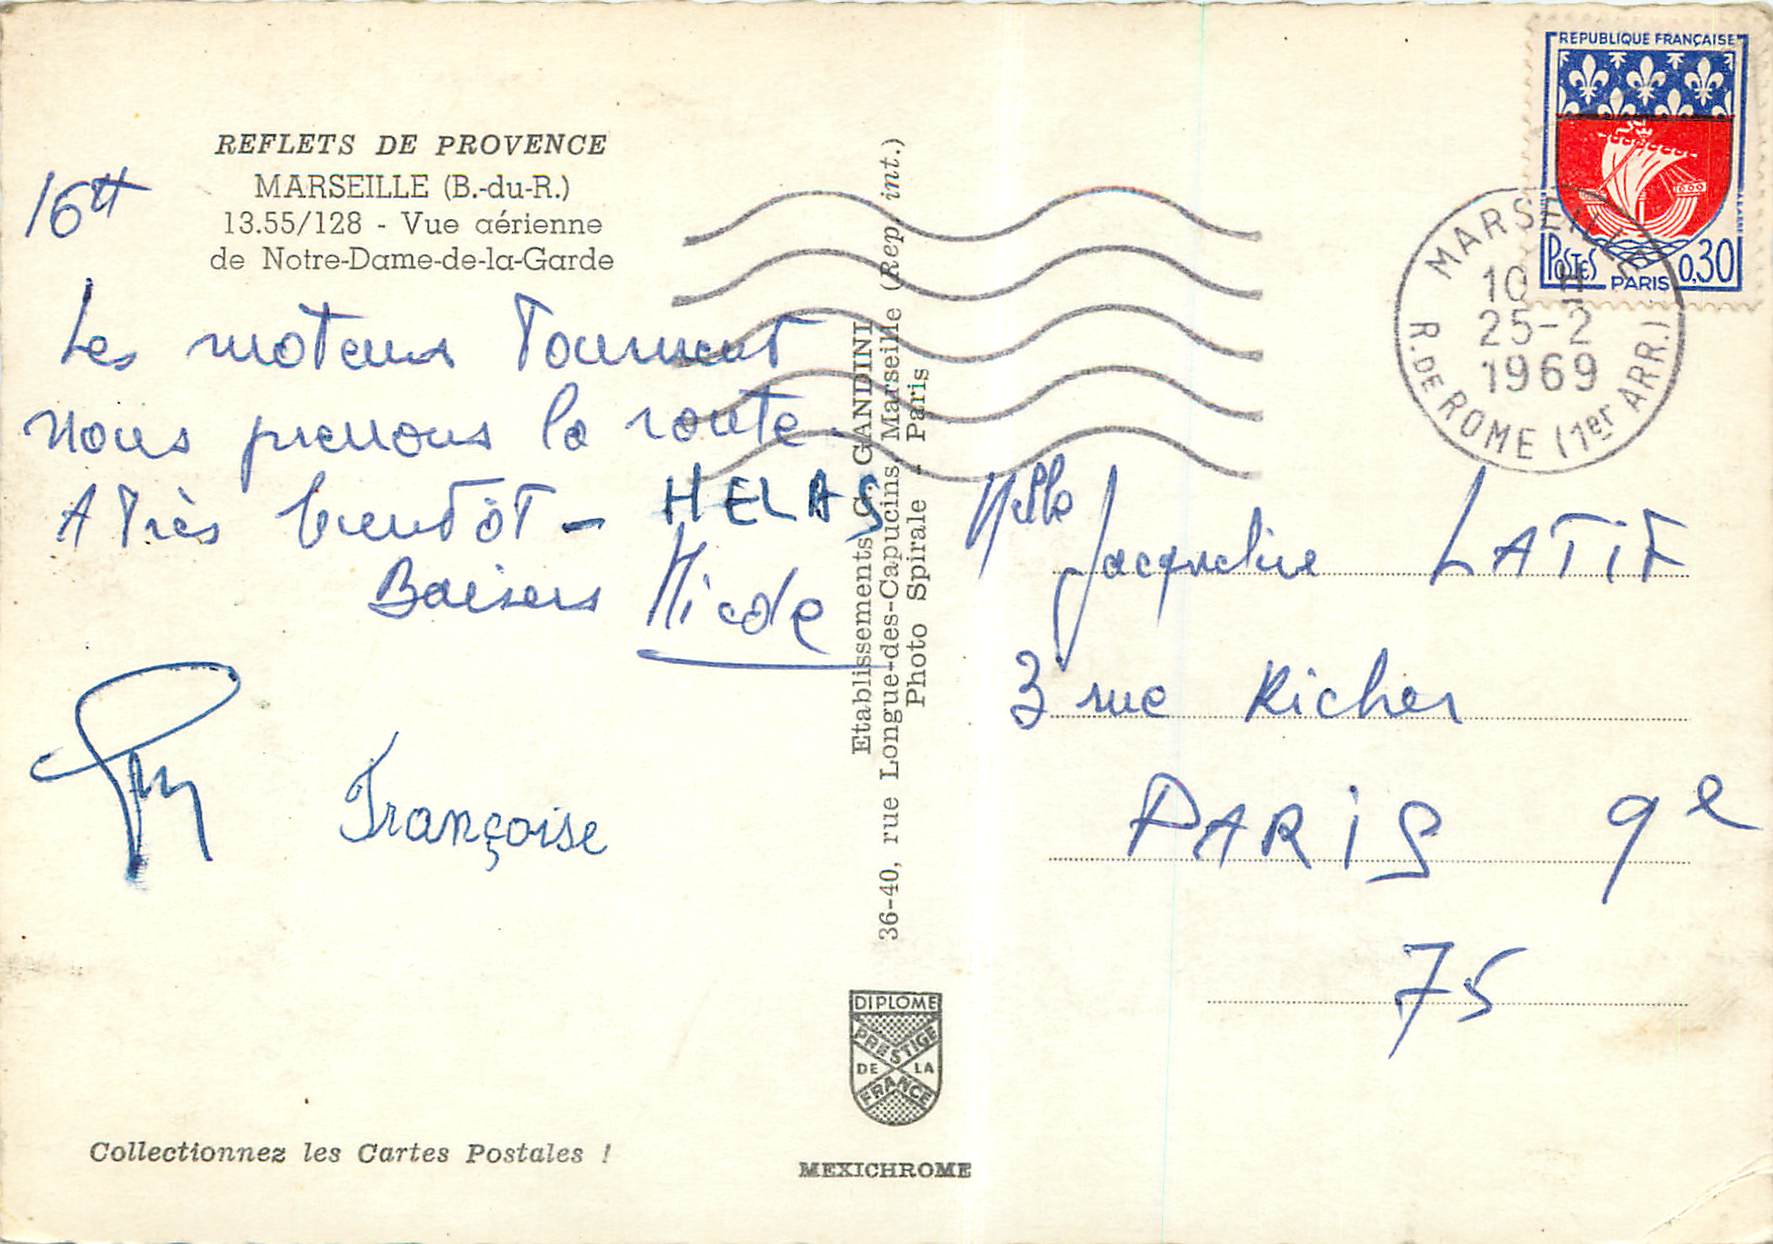 REFLETS DE PROVENCE
MARSEILLE (B.-du-R.)
13.55/128 - Vue aérienne
de Notre-Dame-de-la-Garde
16H
Les moteurs Tournent
Nous prenons la route.
A Très bientôt - HELAS
Baisers Nicole
Guy
Françoise
Collectionnez les Cartes Postales !
Etablissements G. GANDINI
36-40, rue Longue-des-Capucins, Marseille (Rep. int.)
Photo Spirale - Paris
DIPLOME
PRESTIGE
DE LA
FRANCE
MEXICHROME
REPUBLIQUE FRANÇAISE
POSTES PARIS 0,30
MARSEILLE
10 H
25-2
1969
R. DE ROME (1er ARR.)
Mlle Jacqueline LATIF
3 rue Richer
PARIS 9e
75